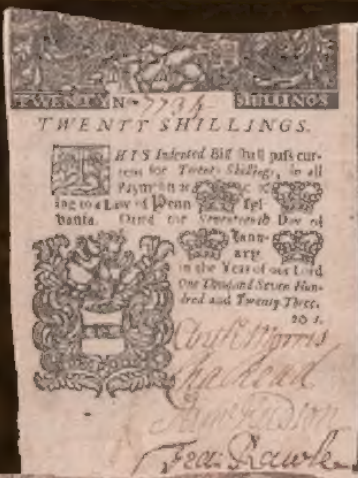 TWENTY No 7734 SHILLINGS
TWENTY SHILLINGS.
THIS Indented Bill shall pass cur-
rent for Twenty Shillings, in all
Payments
ing to a Law of Penn syl-
vania. Dated the Seventeenth Day of
Janu-
ary
in the Year of our Lord
One Thousand Seven Hun-
dred and Twenty Three.
20 s.
Anth Morris
Cha Read
Hudson
Fra: Rawle